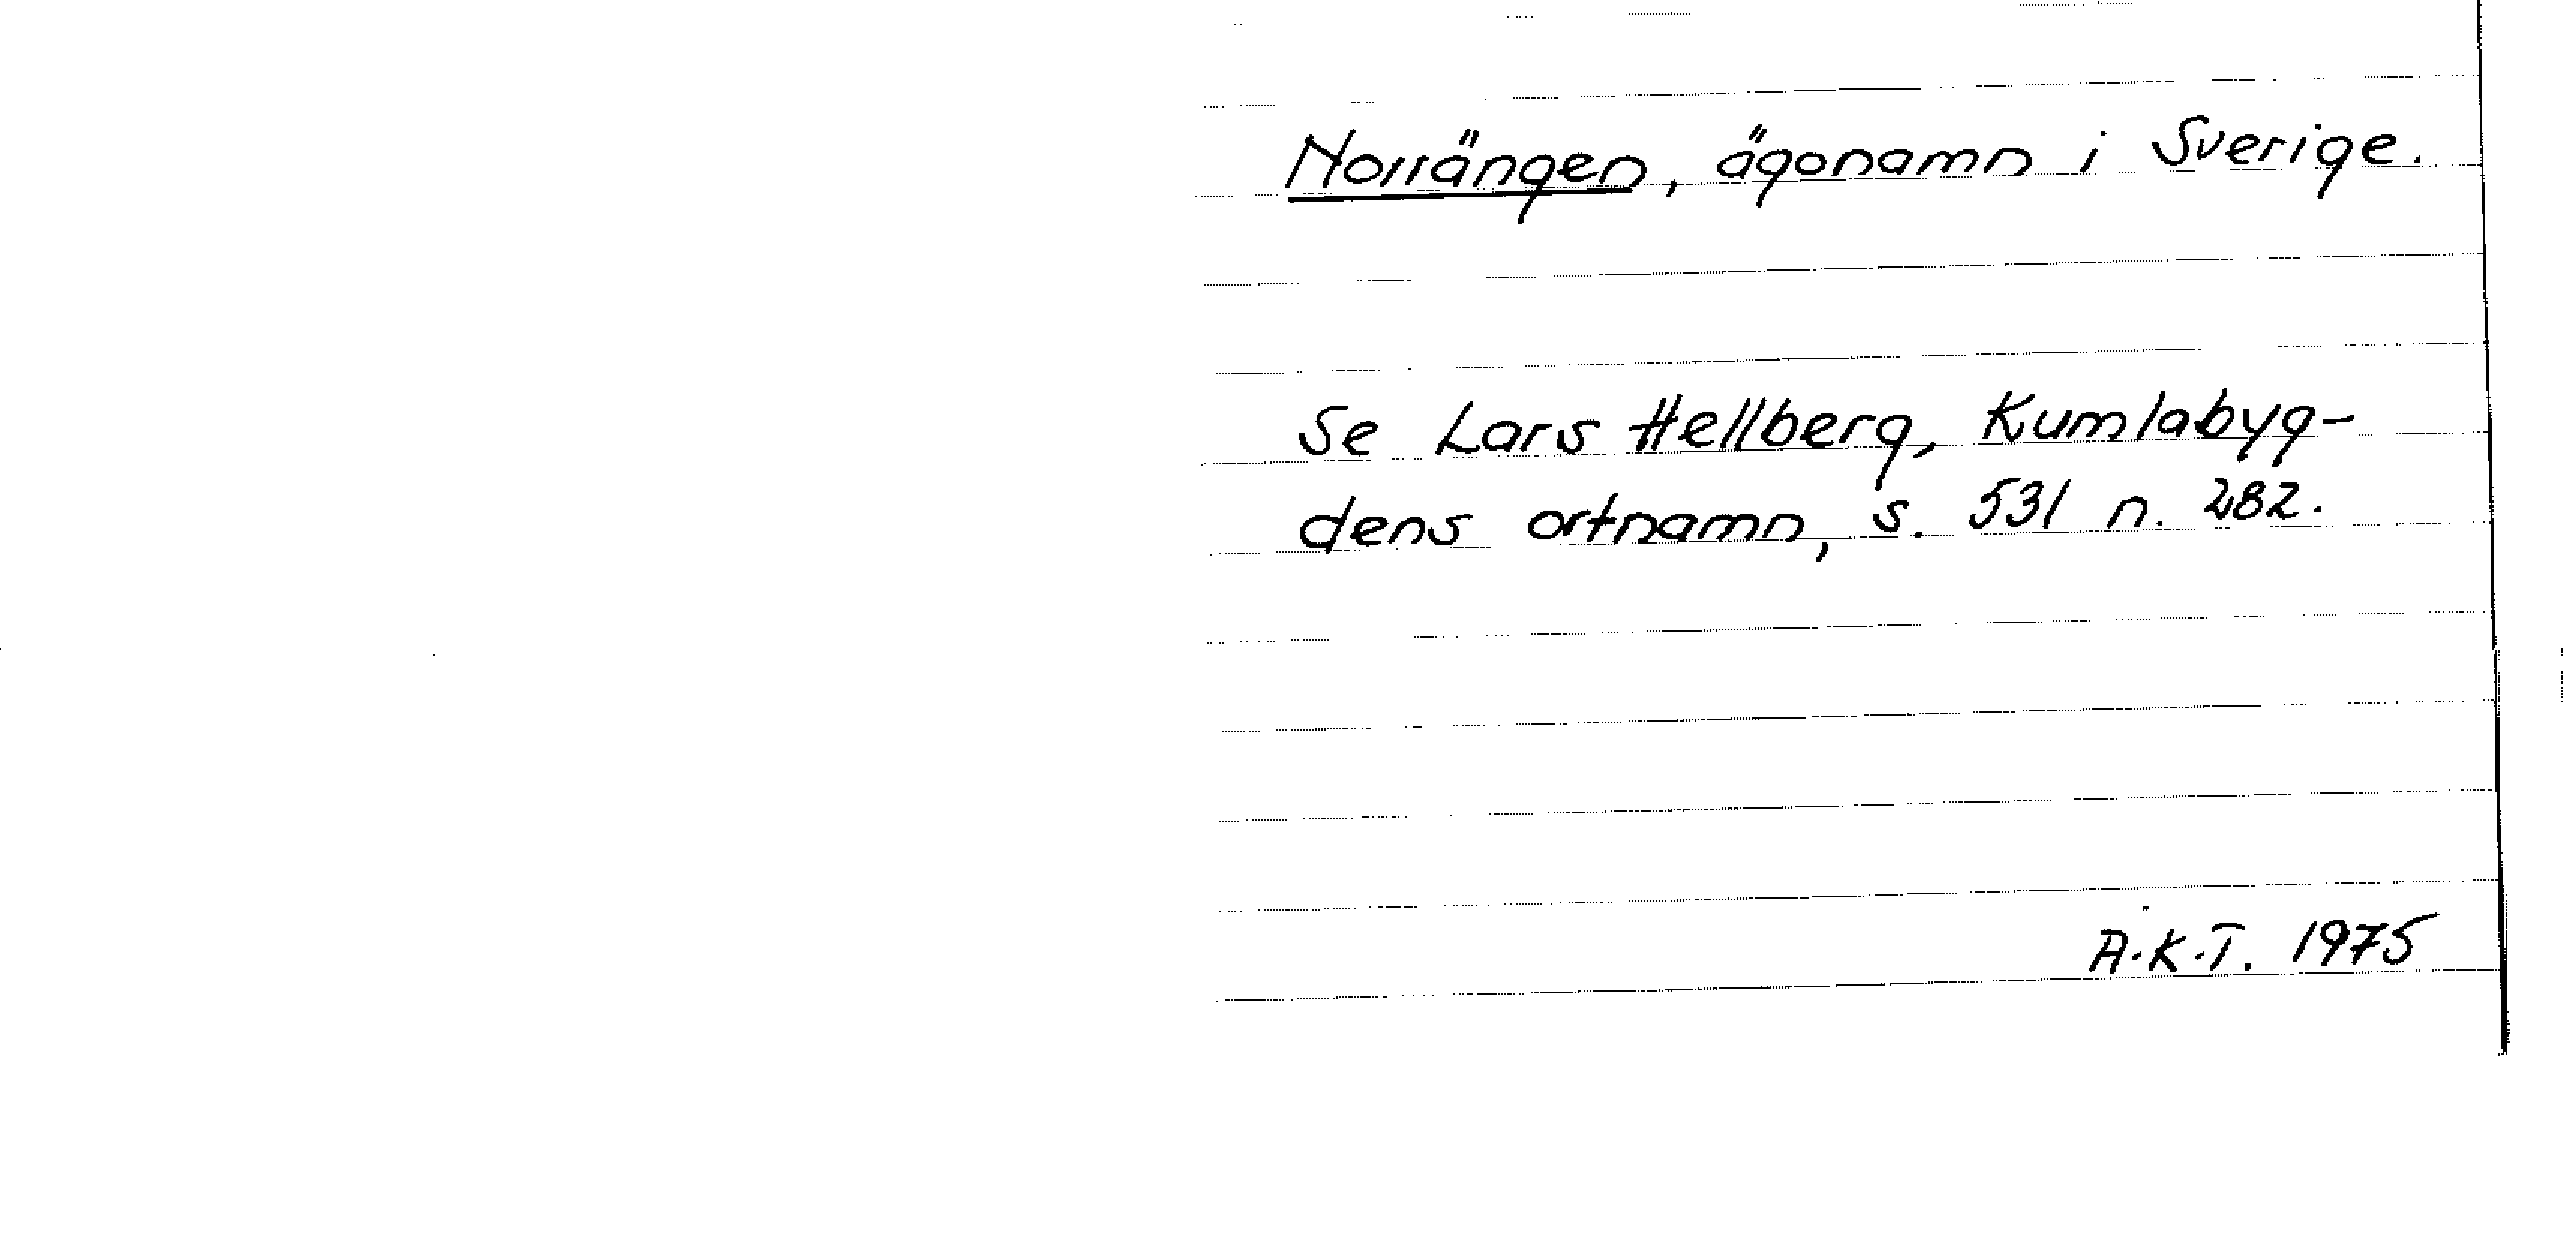 Norrängen, ägonamn i Sverige.
Se Lars Hellberg, Kumlabyg-
dens ortnamn, s. 531 n. 282.
A.K.T. 1975